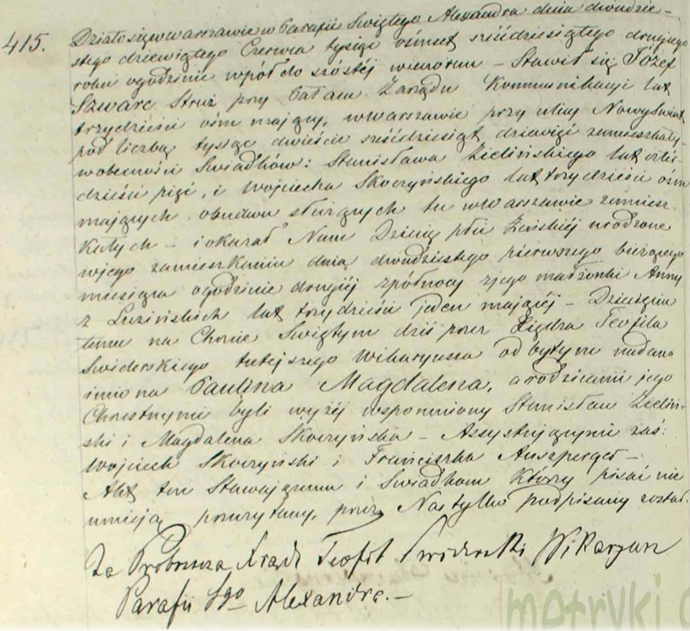 415. Działo się w Warszawie w Parafii Świętego Alexandra dnia dwudzie-
stego dziewiątego Czerwca tysiąc ośmset sześćdziesiątego drugiego
roku o godzinie wpół do szóstej wieczorem – Stawił się Józef
Szwarc Stróż przy Pałacu Zarządu Kommunikacyi lat
trzydzieści ośm mający, w Warszawie przy ulicy Nowy Świat
pod liczbą tysiąc dwieście sześćdziesiąt dziewięć zamieszkały –
w obecności Świadków: Stanisława Zielińskiego lat czter-
dzieści pięć, i Wojciecha Skoczyńskiego lat trzydzieści ośm
mających obudwu służących tu w Warszawie zamiesz-
kałych – i okazał Nam Dziecię płci Żeńskiéj urodzone
w jego zamieszkaniu dnia dwudziestego pierwszego bieżącego
miesiąca o godzinie drugiéj z północy z jego małżonki Anny
z Luzińskich lat trzydzieści jeden mającéj – Dziecięciu
temu na Chrzcie Świętym dziś przez Księdza Teofila
Świderskiego tutejszego Wikaryusza odbytym nadano
imiona Paulina Magdalena, a rodzicami jego
Chrzestnymi byli wyżéj wspomniony Stanisław Zieliń-
ski i Magdalena Skoczyńska – Assystującymi zaś:
Wojciech Skoczyński i Franciszka Auszperger –
Akt ten Stawającemu i Świadkom którzy pisać nie
umieją przeczytany, przez Nas tylko podpisany został.
Za Proboszcza Ksiądz Teofil Świderski Wikaryusz
Parafii Sgo Alexandra. –
metryki